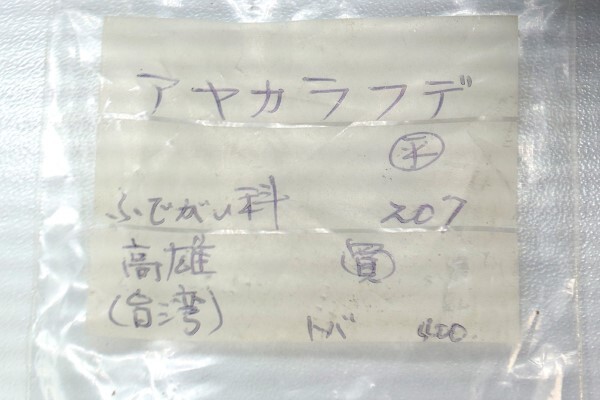 アヤカラフデ
㊤
ふでがい科 207
高雄 買
(台湾) トバ 400